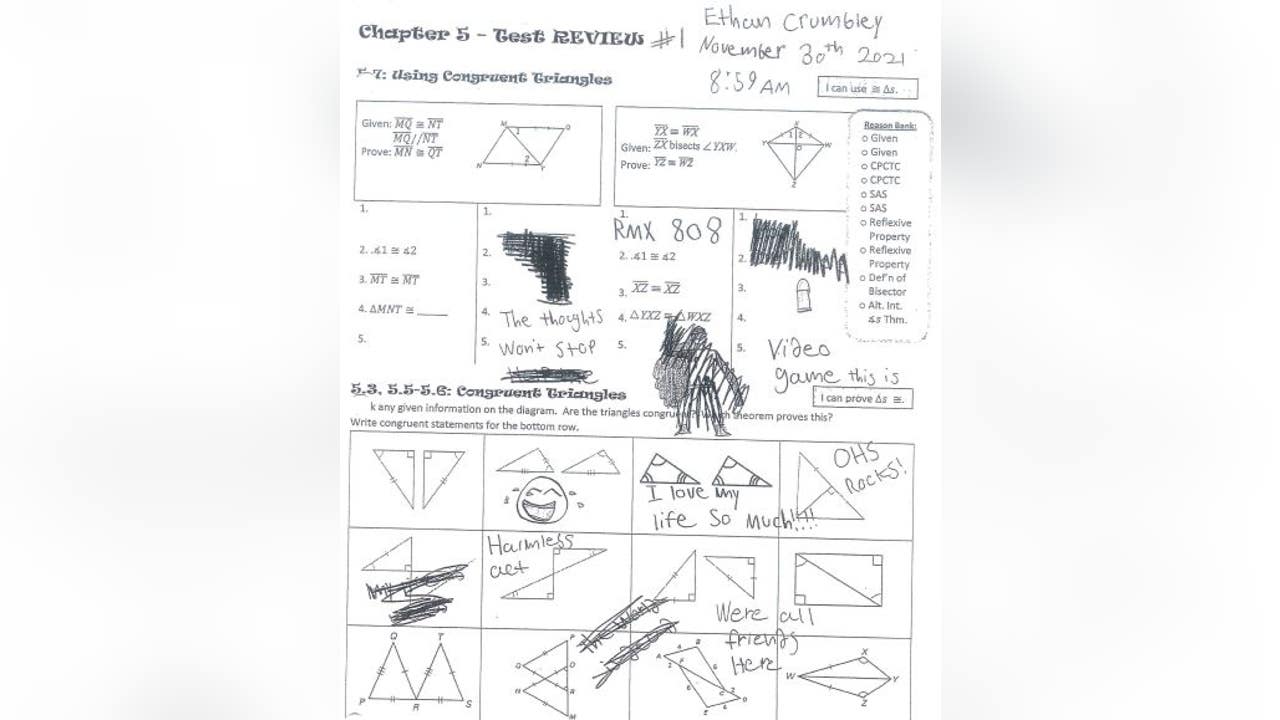 Ethan Crumbley
Chapter 5 - Test REVIEW #1
November 30th 2021
8:59 AM
5-7: Using Congruent Triangles
I can use ≅ Δs.
Given: MQ ≅ NT
MQ//NT
Prove: MN ≅ QT
M
Q
1
2
N
YX ≅ WX
Given: ZX bisects ∠YXW.
Prove: YZ ≅ WZ
X
1 2
Y
W
Z
Reason Bank:
o Given
o Given
o CPCTC
o CPCTC
o SAS
o SAS
o Reflexive
Property
o Reflexive
Property
o Def'n of
Bisector
o Alt. Int.
∡s Thm.
1.
2. ∡1 ≅ ∡2
3. MT ≅ MT
4. ΔMNT ≅ _____
5.
1.
2.
3.
4. The thoughts
5. Won't stop
1.
RMX 808
2. ∡1 ≅ ∡2
3. XZ ≅ XZ
4. ΔYXZ ≅ ΔWXZ
5.
1.
2.
3.
4.
5. Video
game this is
5.3, 5.5-5.6: Congruent Triangles
I can prove Δs ≅.
k any given information on the diagram. Are the triangles congruent? Which theorem proves this?
Write congruent statements for the bottom row.
I love my
life so much!!!!
OHS
Rocks!
Harmless
act
Were all
friends
Here
Q T
P R S
P
Q
R
M
X
W Y
Z